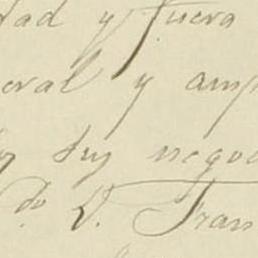 dad y fuera
eral y amp
sus nego
do. D. Fran